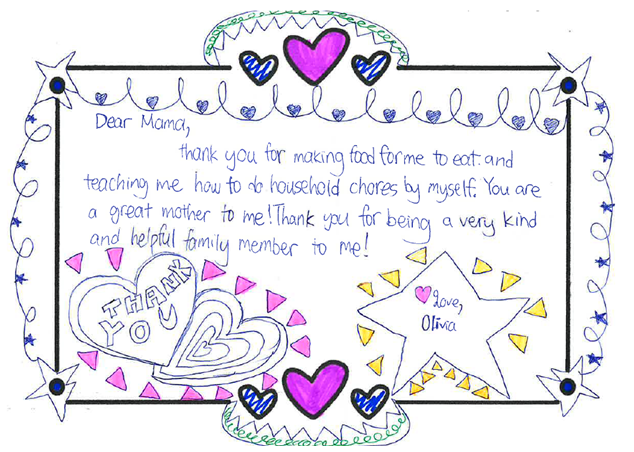 Dear Mama,
thank you for making food for me to eat and
teaching me how to do household chores by myself. You are
a great mother to me! Thank you for being a very kind
and helpful family member to me!
THANK
YOU
Love,
Olivia